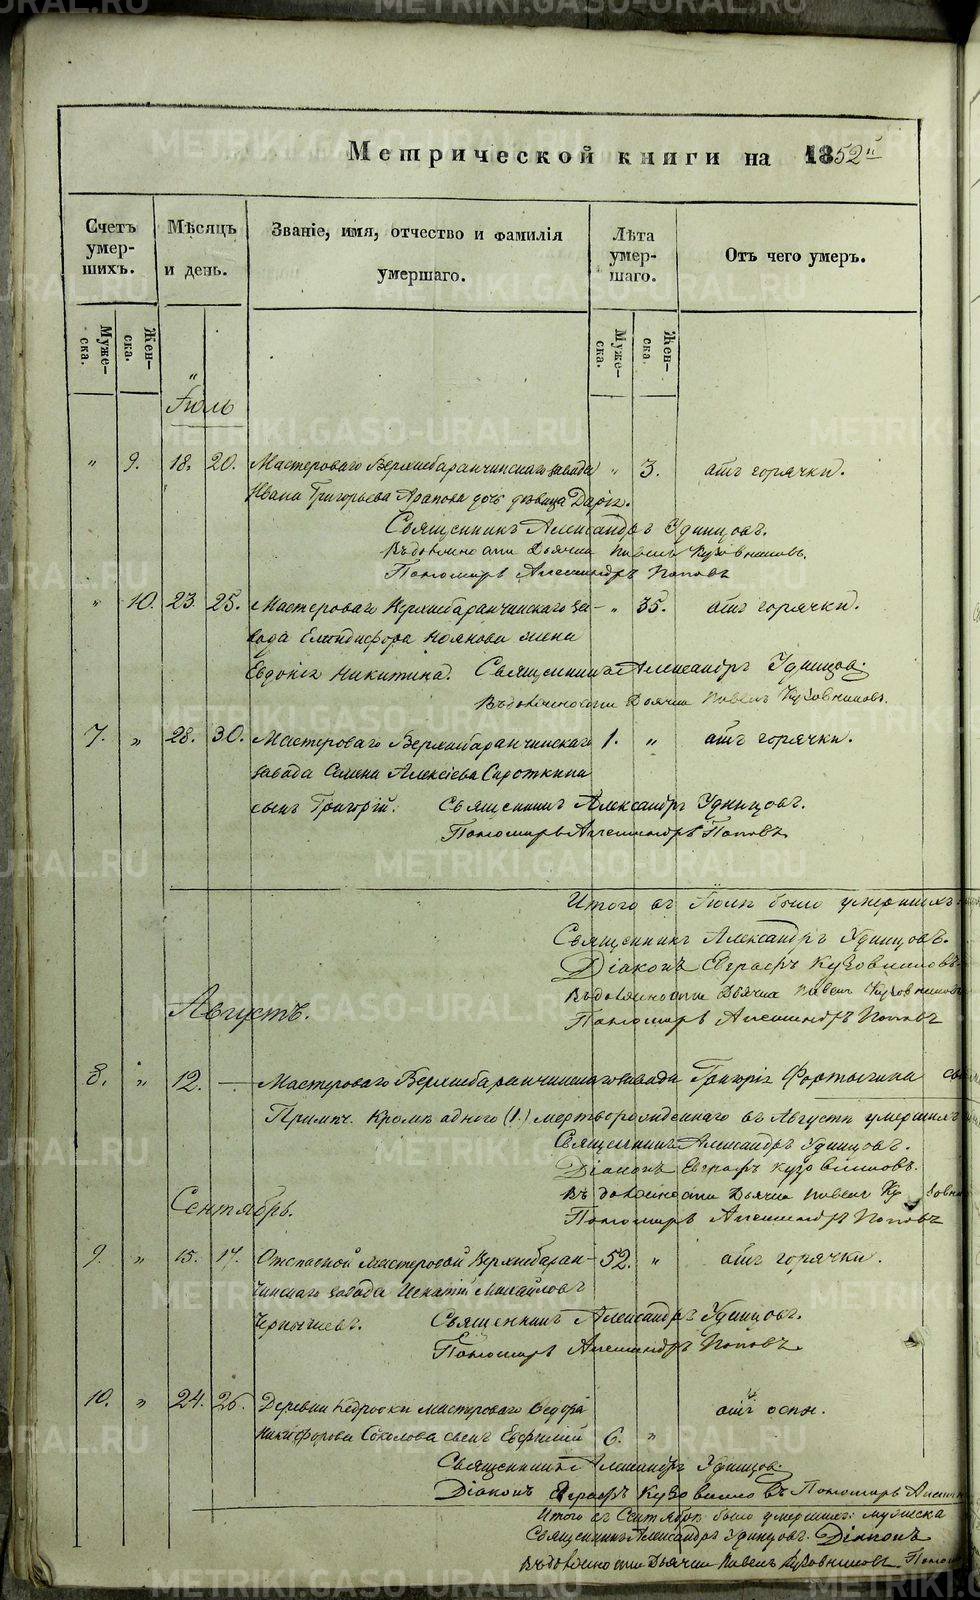 Метрической книги на 1852й
Счетъ умер-шихъ.
Мѣсяцъ и день.
Званіе, имя, отчество и фамилія умершаго.
Лѣта умер-шаго.
Отъ чего умеръ.
Муже-ска.
Жен-ска.
Муже-ска.
Жен-ска.
Іюль
" 9. 18. 20. Мастероваго Верхнебаранчинскаго завода " 3. отъ горячки.
Ивана Григорьева Арапова дочь дѣвица Дарія.
Священникъ Александръ Удинцовъ.
Въ должности Дьячка Павелъ Кузовниковъ.
Пономарь Александръ Поповъ
" 10. 23. 25. Мастероваго Верхнебаранчинскаго за- " 35. отъ горячки.
вода жена
Евдокія Никитина. Священникъ Александръ Удинцов.
Въ должности Дьячка Павелъ Кузовниковъ.
7. " 28. 30. Мастероваго Верхнебаранчинскаго 1. " отъ горячки.
завода Алексіева Сироткина
сынъ Григорій. Священникъ Александръ Удинцовъ.
Пономарь Александръ Поповъ
Итого въ Іюлѣ было умершихъ
Священникъ Александръ Удинцовъ.
Діаконъ Евграфъ Кузовниковъ
Въ должности Дьячка Павелъ Кузовниковъ
Пономарь Александръ Поповъ
Августъ.
8. " 12. — Мастероваго Верхнебаранчинскаго завода Григорія
Примѣч. Кромѣ одного (1.) мертворожденнаго въ Августѣ умершихъ
Священникъ Александръ Удинцовъ.
Діаконъ Евграфъ Кузовниковъ.
Въ должности Дьячка Павелъ Кузовни
Пономарь Александръ Поповъ
Сентябрь.
9. " 15. 17. Отставной мастеровой Верхнебаран- 52. " отъ горячки.
чинскаго завода Игнатій Михайловъ
Чернышевъ. Священникъ Александръ Удинцовъ.
Пономарь Александръ Поповъ
10. " 24. 26. Деревни Кедровки мастероваго Ѳедора отъ оспы.
Никифорова Соколова сынъ Евфимій 6. "
Священникъ Александръ Удинцов.
Діаконъ Евграфъ Кузовниковъ Пономарь
Итого въ Сентябрѣ было умершихъ: мужеска
Священникъ Александръ Удинцовъ. Діаконъ
Въ должности Дьячка Павелъ Кузовниковъ. Поном
METRIKI.GASO-URAL.RU